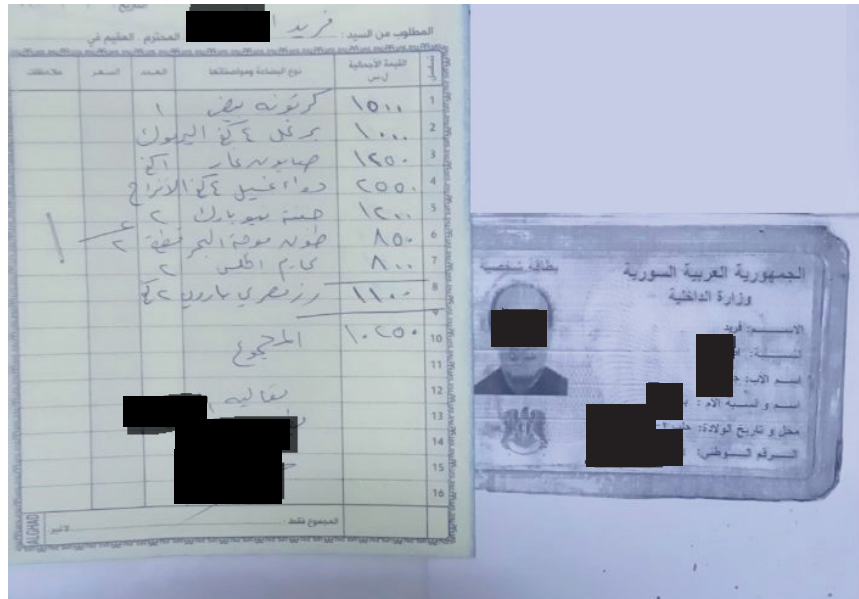 التاريخ
المطلوب من السيد: فريد المحترم . المقيم في
تسلسل القيمة الاجمالية ل.س نوع البضاعة ومواصفاتها العدد السعر ملاحظات
1 ١٥٠٠ كرتونه بيض ١
2 ١٠٠٠ برغل ٤ كغ اليرموك
3 ١٢٥٠ صابون غار ١كغ
4 ٢٥٥٠ دواء غسيل ٤كغ الافراح
5 ١٢٠٠ ٢
6 ٨٥٠ طون موجة البحر قطع ٢
7 ٨٠٠ محارم اطلس ٢
8 ١١٠٠ رز مصري ٢كغ
9
10 ١٠٢٥٠ المجموع
11
12
13
14
15
16
المجموع فقط : لاغير
ALGHAD
الجمهورية العربية السورية
وزارة الداخلية
بطاقة شخصية
الاسم: فريد
النسبة:
اسم الأب:
اسم و نسبة الأم:
محل و تاريخ الولادة: حلب
الرقم الوطني: